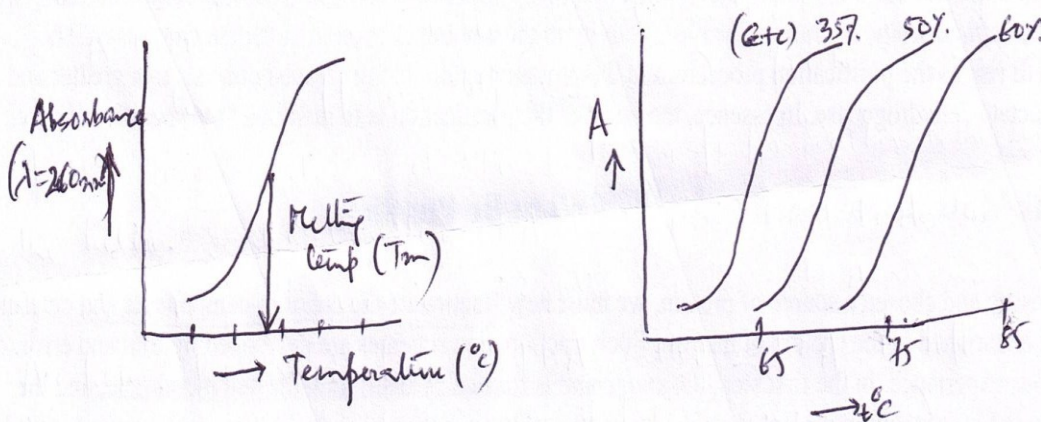 Absorbance
(λ=260nm)
Melting
temp (Tm)
→ Temperature (°C)
(G+C) 35% 50% 60%
A
65 75 85
→ t°C